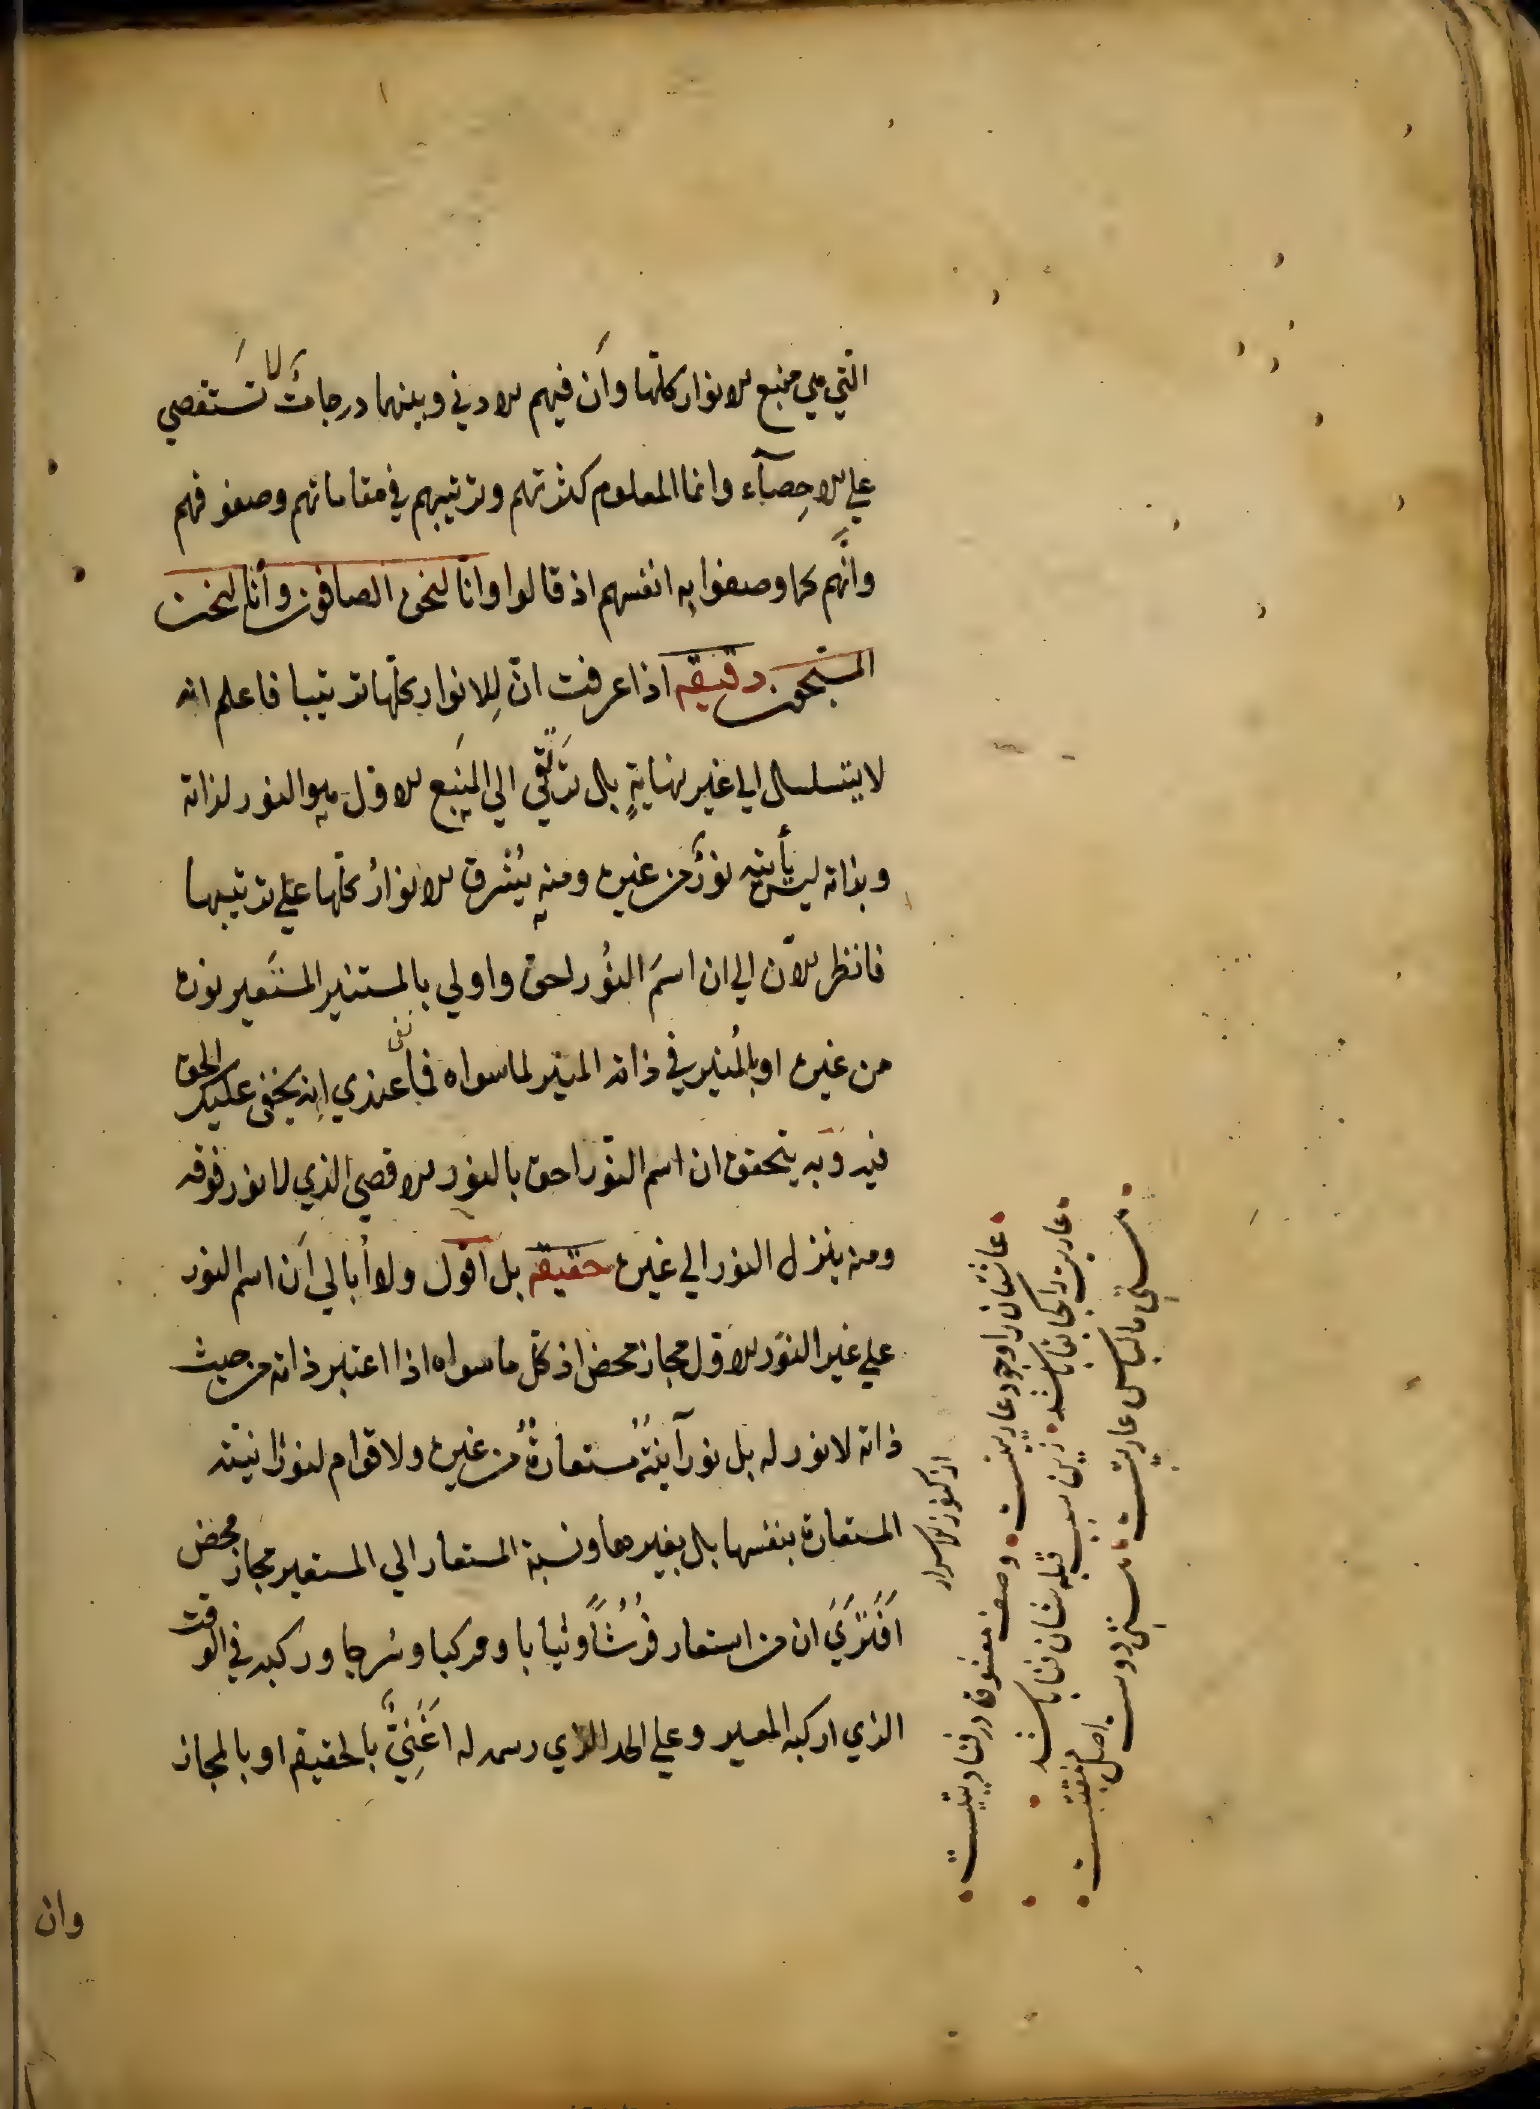 التي هي منبع الانوار كلّها وأن فيهم الادني وبينهما درجاتٌ لا تَستقصي
علي الاحِصآء وانما المعلوم كثرتهم وترتيبهم في مقاماتهم وصفوفهم
وانّهم كما وصفوا به انفسهم اذ قالوا وانّا لنحن الصافون وأنا لنحن
المسبّحون دقيقه اذا عرفت انّ لِلانوار كلّها ترتيبا فاعلم انه
لا يتسلسل الي غير نهايةٍ بل ترتقي الي المنبَع الاوّل هو النور لذاته
وبذاته ليس يأتيه نورٌ من غيره ومنه يُشرق الانوارُ كلّها علي ترتيبها
فانظر الآن الي ان اسمَ النوُر احق واولي بالمستنير المستَعير نوره
من غيره او بالمُنير في ذاته المنير لما سواه فما عندي انه يخفي عليك الحق
فيه وَبه يتحقق ان اسم النوّر احق بالنوَر الاقصي الذي لا نور فوقه
ومنه ينزل النور الي غيره حقيقه بل اقول ولا أبالي أن اسم النور
علي غير النوَر الاوّل مجاز محض اذ كلّ ما سواه اذا اعتبر ذاته من حيث
ذاته لا نور له بل نورآنيتُهُ مستعارةٌ من غيره ولا قوام لنورانيته
المستعارة بنفسها بل بغيرها ونسبة المستعار الي المستعير مجاز محض
اَفَتَرَيَ ان من استعار فرُسُاً وثيابا ومركبا وسرجا وركبه في الوقت
الذي اركبه المعير وعلي الحد الذي رسمه له اَغَنِيٌّ بالحقيقه او بالمجاز
وان
از كنوز الاسرار
عاشقان را وجود عاريتست وصف معشوق در فنا
عاريت را كجا بقا باشد زين سبب قبله شان فنا باشد
هستي ما لباس عاريت هستي دوست اصل منقبتست